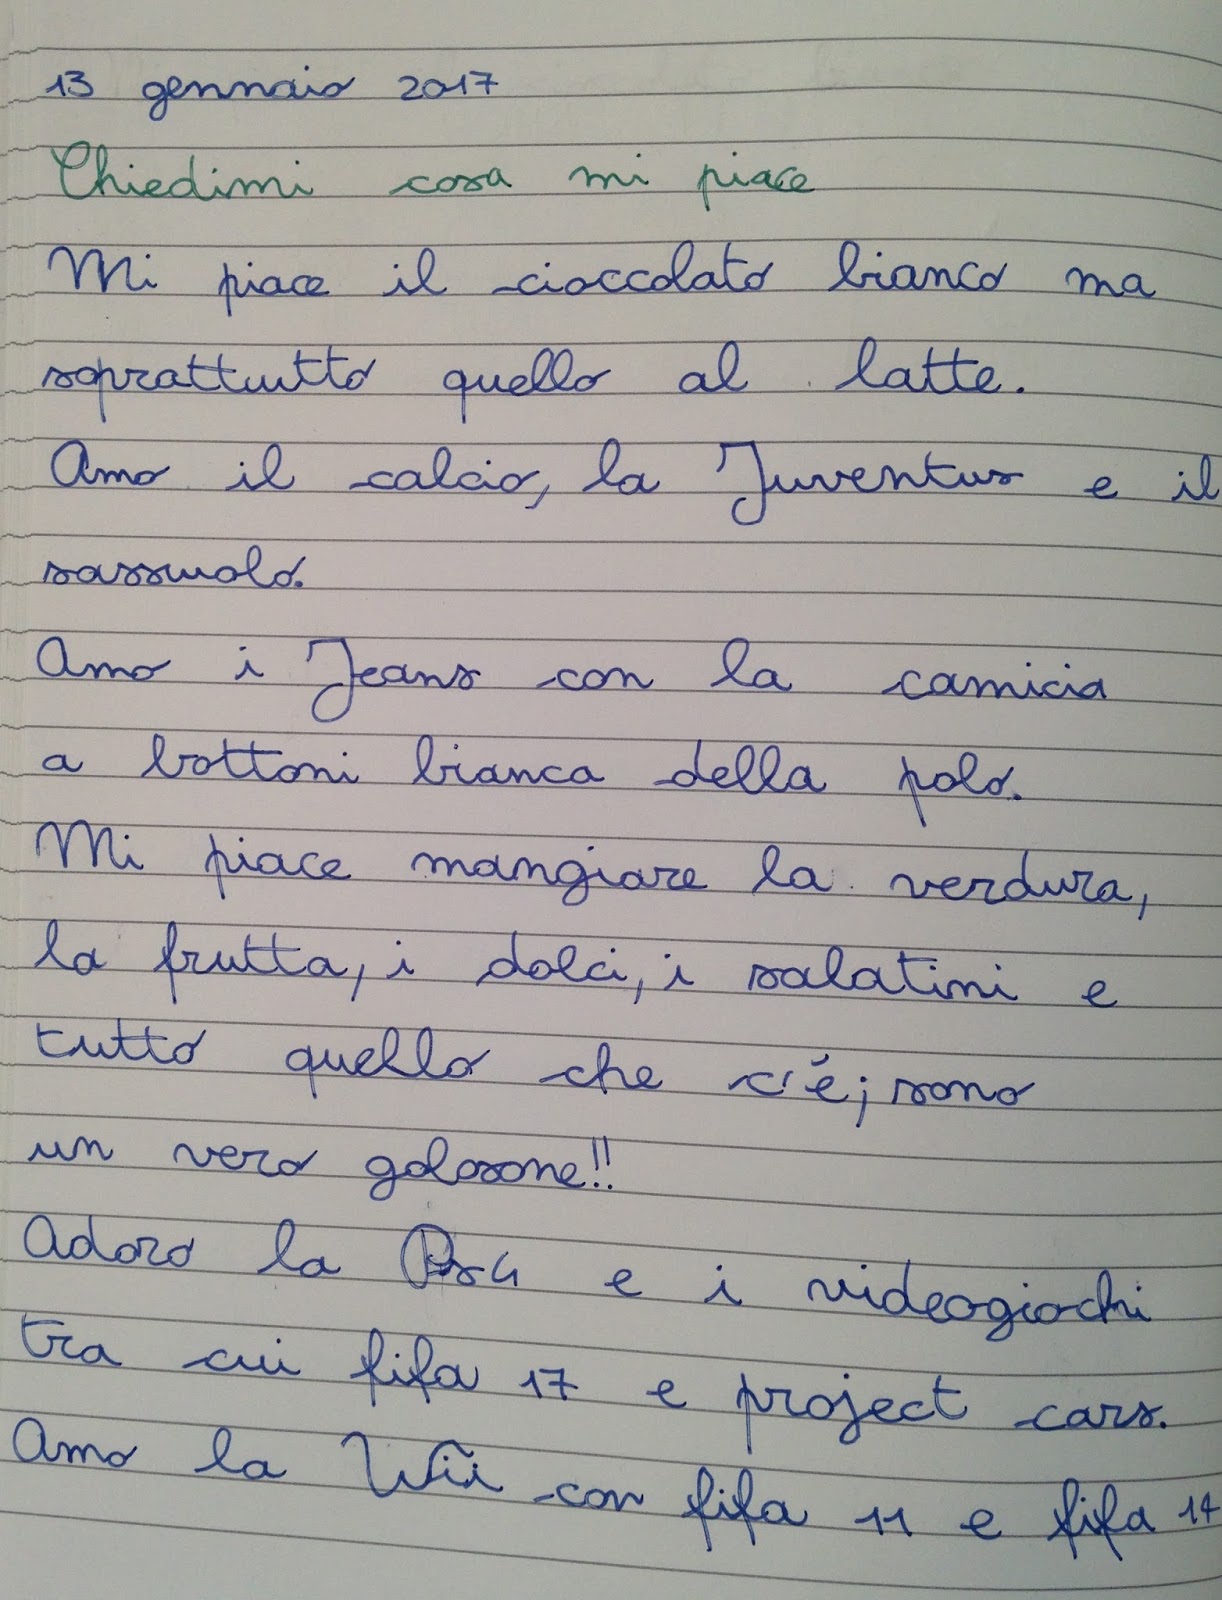 13 gennaio 2017
Chiedimi cosa mi piace
Mi piace il cioccolato bianco ma
soprattutto quello al latte.
Amo il calcio, la Juventus e il
sassuolo.
Amo i Jeans con la camicia
a bottoni bianca della polo.
Mi piace mangiare la verdura,
la frutta, i dolci, i salatini e
tutto quello che c'é; sono
un vero golosone!!
Adoro la Ps4 e i videogiochi
tra cui fifa 17 e project cars.
Amo la Wii con fifa 11 e fifa